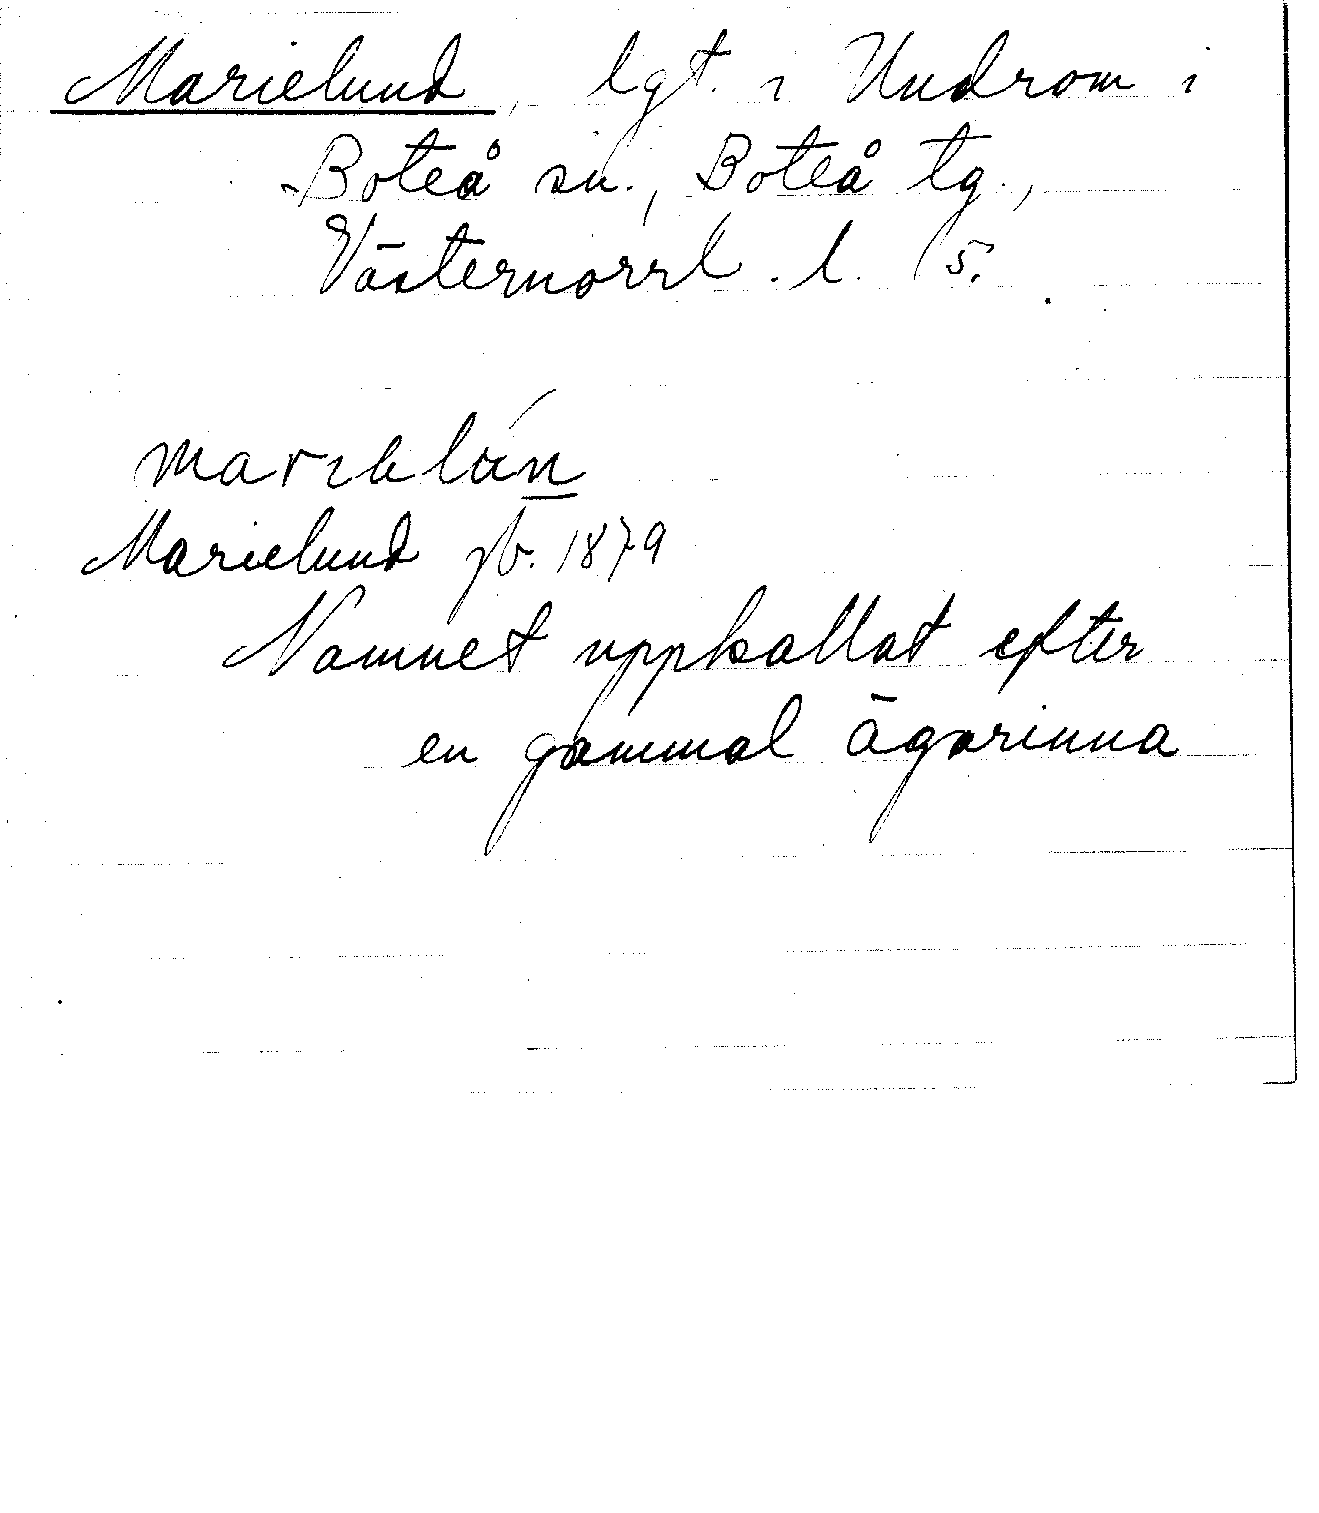 Marielund, lgt. i Undrom i
Boteå sn., Boteå tg.,
Västernorrl. l. (5.
Marielund jb. 1879
Namnet uppkallat efter
en gammal ägarinna